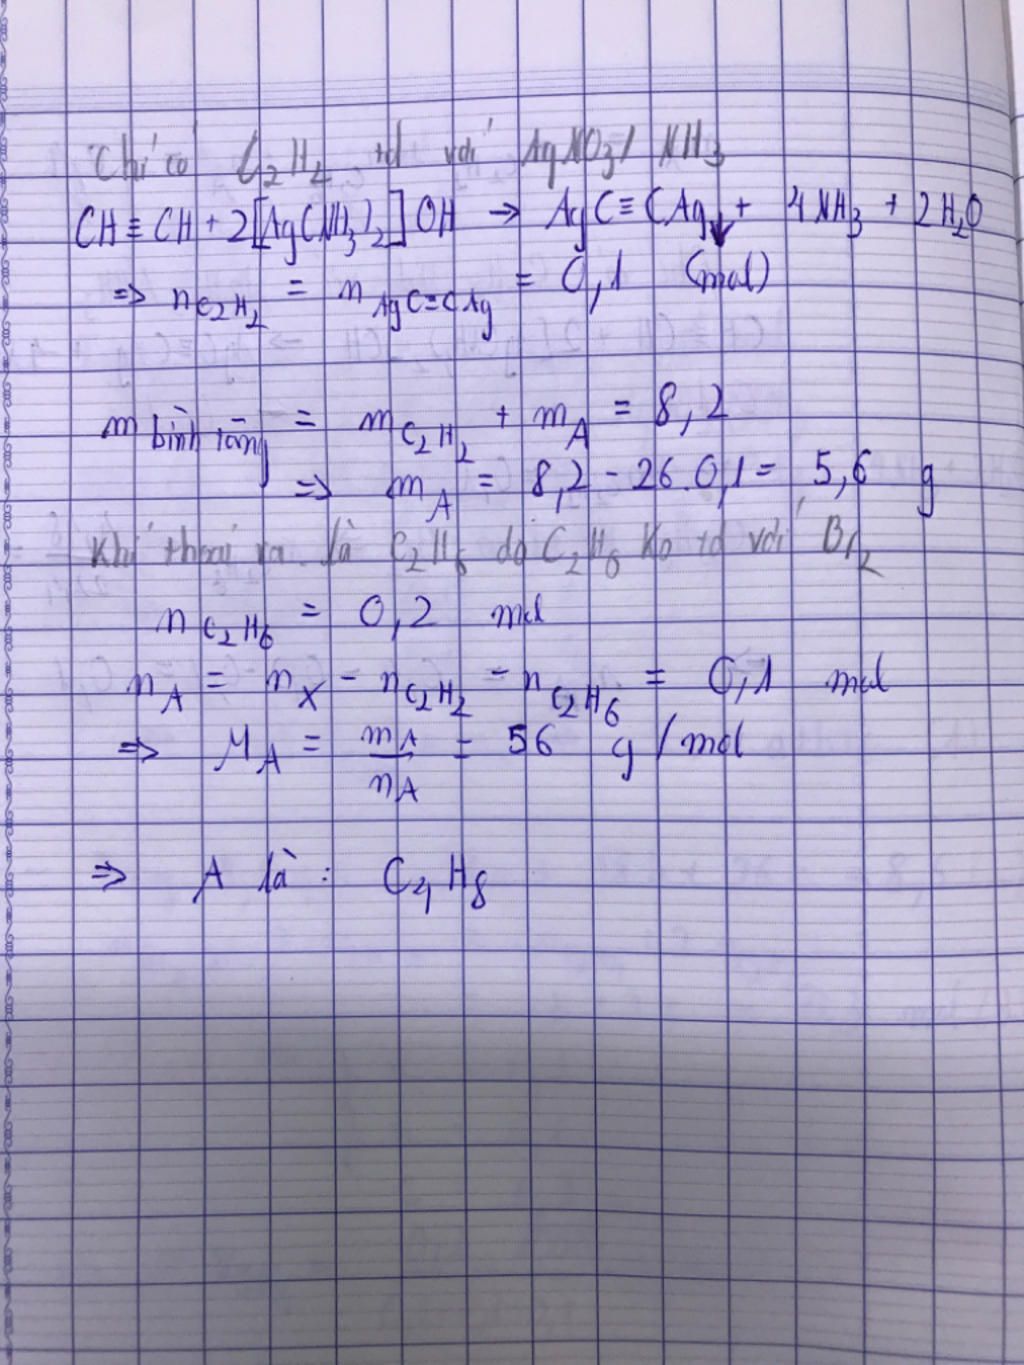 Chỉ có C₂H₂ td với AgNO₃/NH₃
CH≡CH + 2[Ag(NH₃)₂]OH → AgC≡CAg↓ + 4NH₃ + 2H₂O
=> n C₂H₂ = n AgC≡CAg = 0,1 (mol)
m bình tăng = m C₂H₂ + m A = 8,2
=> m A = 8,2 - 26.0,1 = 5,6 g
Khí thoát ra là C₂H₆ do C₂H₆ ko td với Br₂
n C₂H₆ = 0,2 mol
n A = n X - n C₂H₂ - n C₂H₆ = 0,1 mol
=> M A = m A / n A = 56 g/mol
=> A là : C₄H₈